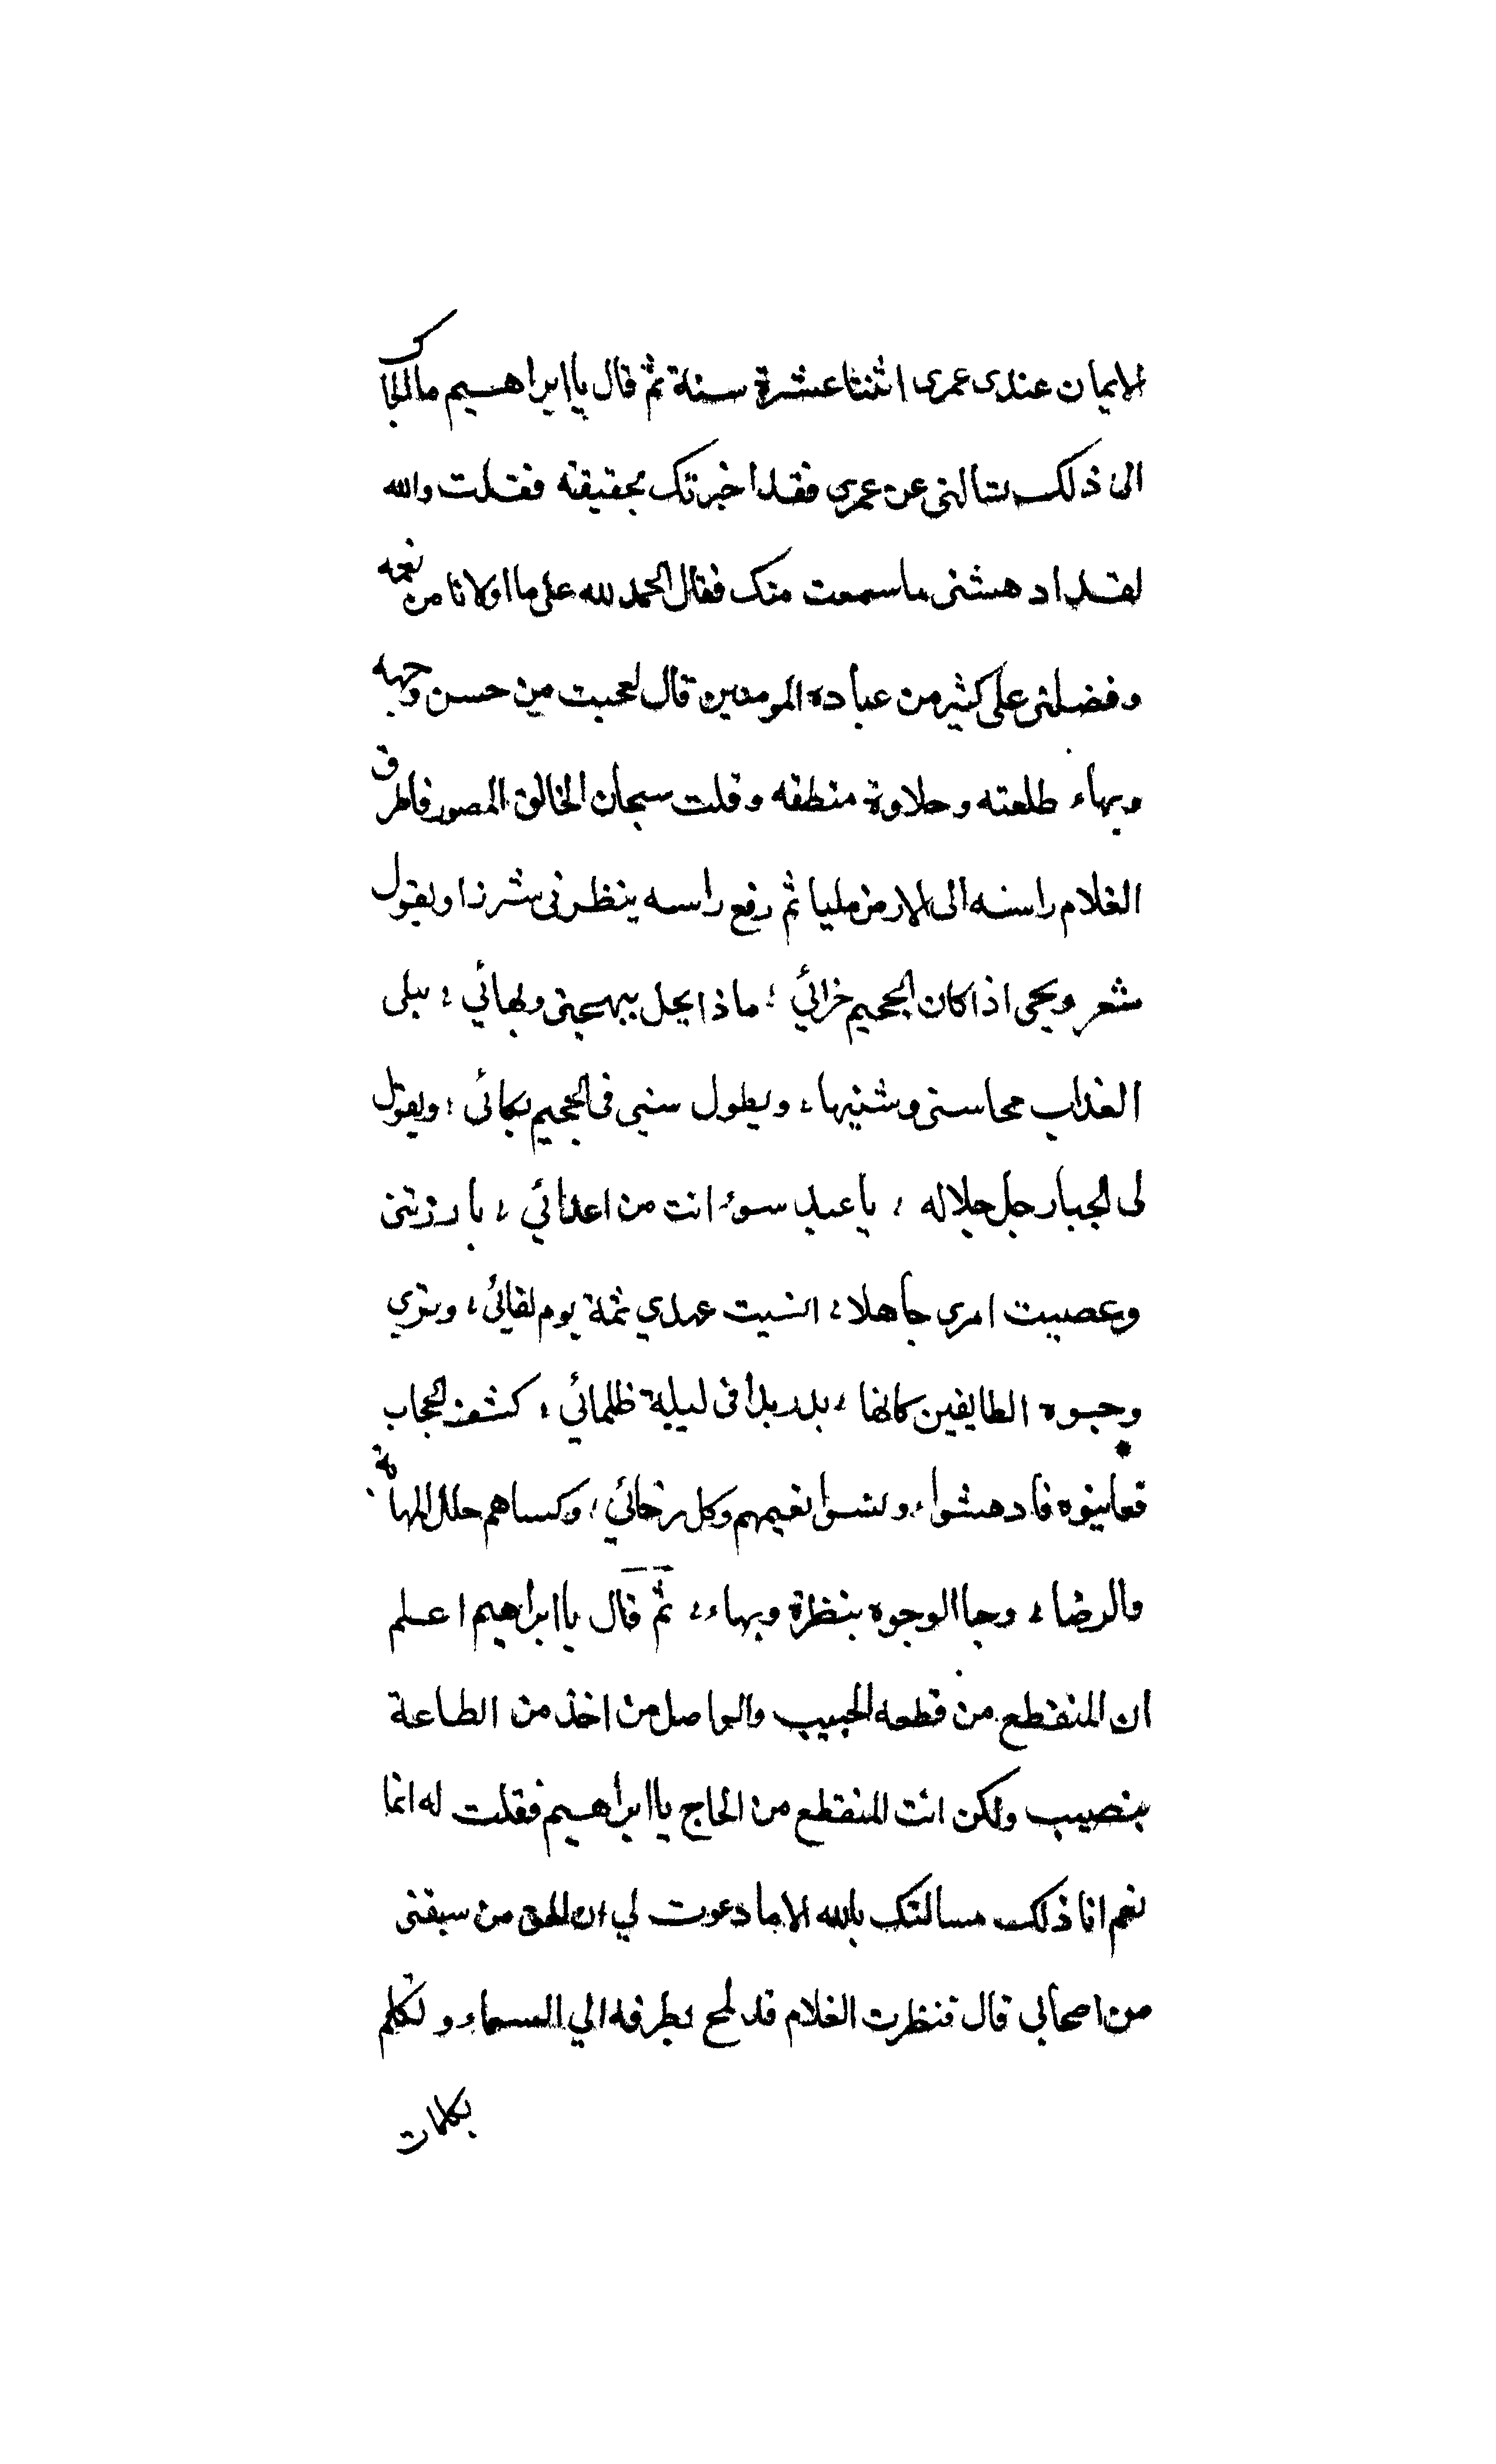 الايمان عندى عمرى اثنتا عشرة سنة ثم قال يا ابراهيم ما الجاك
الى ذلك تسالنى عن عمرى فقد اخبرتك بحقيقته فقلت والله
لقد ادهشنى ما سمعت منك فقال الحمد لله على ما اولانا من نعمه
وفضلنى على كثير من عباده المومنين قال فعجبت من حسن وجهه
وبهاء طلعته وحلاوة منطقه وقلت سبحان الخالق المصور فاطرق
الغلام راسه الى الارض مليا ثم رفع راسه ينظرنى شزرا ويقول
شعر ويحى اذا كان الجحيم جزائي ؛ ماذا يحل ببهجتى وبهائي ؛ يبلى
العذاب محاسنى وشنيها ؛ ويطول سنى فى الجحيم بكائى ؛ ويقول
لى الجبار جل جلاله ؛ يا عبد سوء انت من اعدائي ؛ بارزتنى
وعصيت امرى جاهلا ؛ انسيت عهدي ثمة يوم لقائي ؛ وترى
وجوه الطايفين كانها ؛ بدر بدا فى ليلة ظلمائي ؛ كشف الحجاب
فعاينوه فادهشوا ؛ ونسوا نعيمهم وكل رخائي ؛ وكساهم حلل المهابة
والرضا ؛ وجا الوجوه بنظرة وبهاء ؛ ثم قال يا ابراهيم اعلم
ان المنقطع من قطعه الحبيب والواصل من اخذ من الطاعة
بنصيب ولكن انت المنقطع من الحاج يا ابراهيم فقلت له انما
نعم انا ذلك مسالتك بالله الا ما دعوت لي ان الحق من سبقنى
من اصحابي قال فنظرت الغلام قد لمح بطرفه الي السماء وتكلم
بكلمات